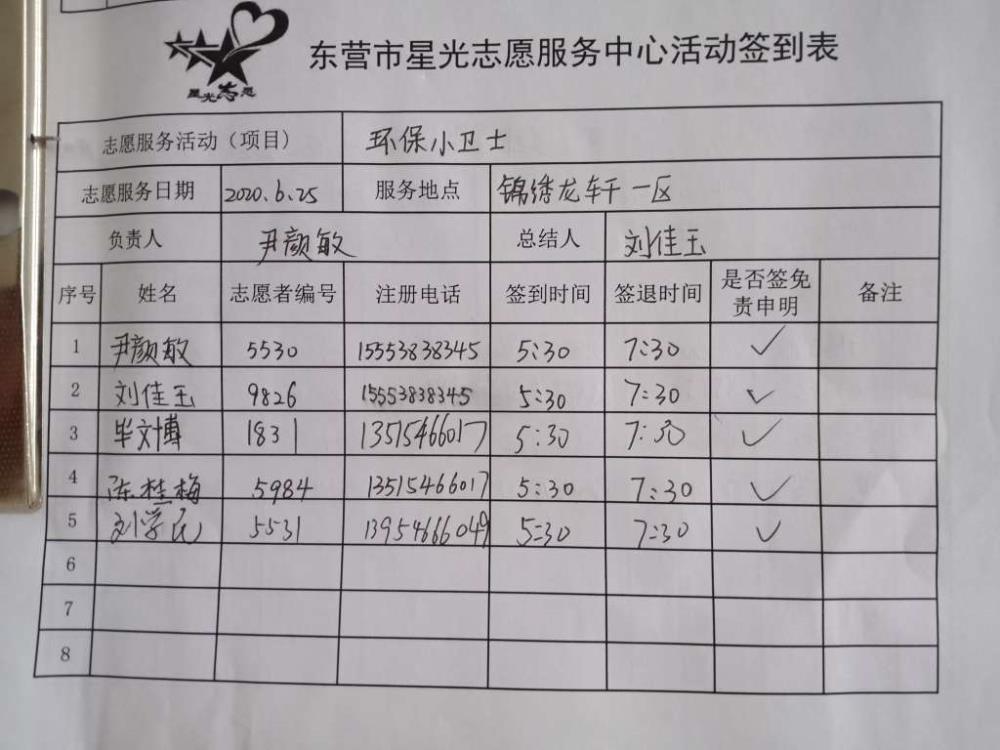 星光志愿
东营市星光志愿服务中心活动签到表
志愿服务活动（项目） 环保小卫士
志愿服务日期 2020.6.25 服务地点 锦绣龙轩一区
负责人 尹颜敏 总结人 刘佳玉
序号 姓名 志愿者编号 注册电话 签到时间 签退时间 是否签免责申明 备注
1 尹颜敏 5530 15553838345 5:30 7:30 ✓
2 刘佳玉 9826 15553838345 5:30 7:30 ✓
3 毕文博 1831 13515466017 5:30 7:30 ✓
4 陈桂梅 5984 13515466017 5:30 7:30 ✓
5 刘学民 5531 13954666049 5:30 7:30 ✓
6
7
8